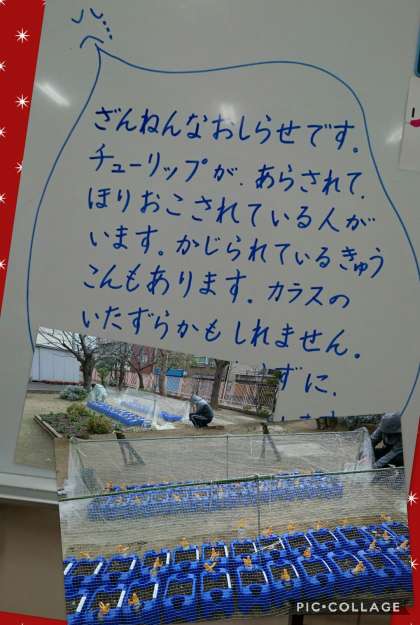 ハ…
ざんねんなおしらせです。
チューリップが、あらされて、
ほりおこされている人が
います。かじられているきゅう
こんもあります。カラスの
いたずらかもしれません。
ずに、
PIC•COLLAGE